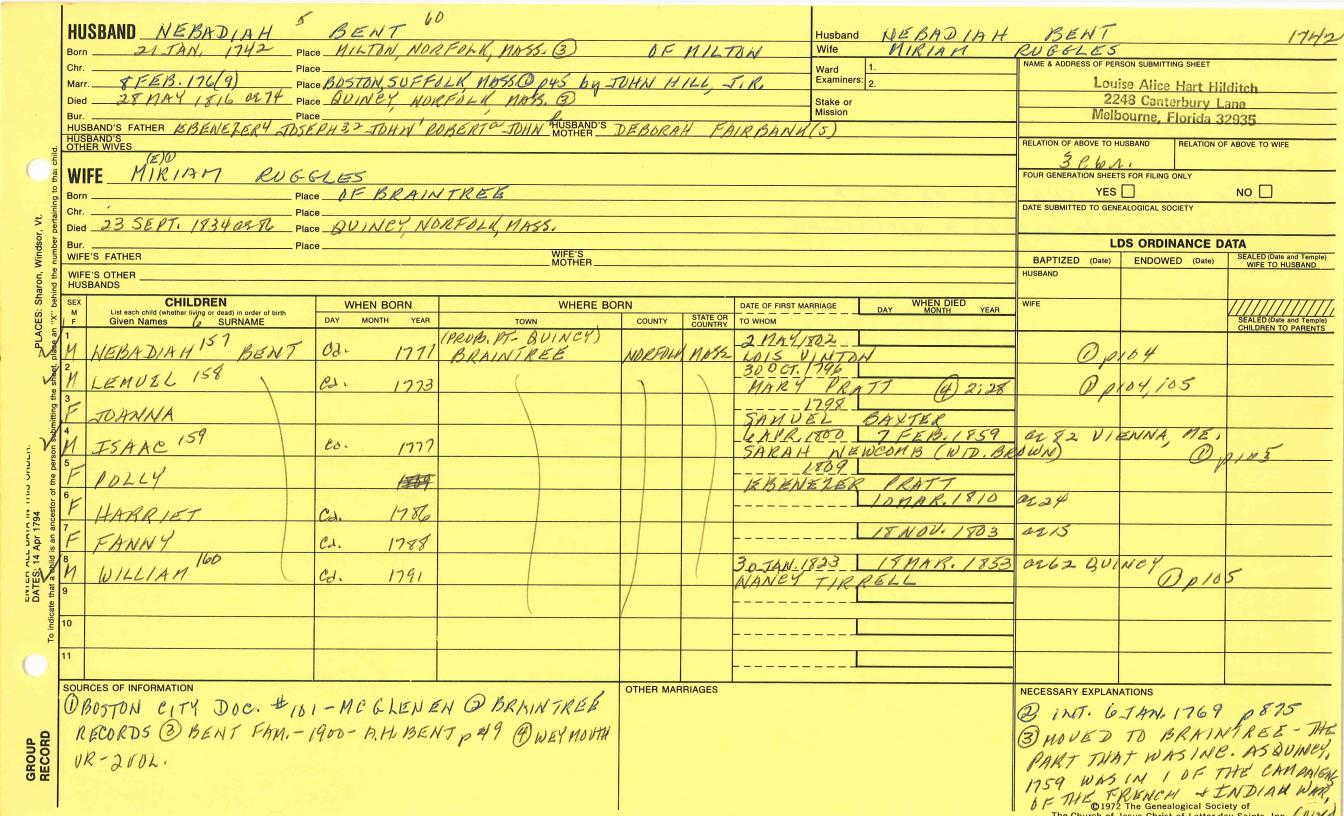 HUSBAND NEBADIAH 5 BENT 60
Born 21 JAN. 1742 Place MILTON, NORFOLK, MASS. ③ OF MILTON
Chr. Place
Marr. 8 FEB. 176(9) Place BOSTON, SUFFOLK, MASS ① p45 by JOHN HILL, J.R.
Died 28 MAY 1816 ae 74 Place QUINCY, NORFOLK, MASS. ③
Bur. Place
HUSBAND'S FATHER EBENEZER4 JOSEPH3 2 JOHN1 ROBERTa JOHN HUSBAND'S MOTHER DEBORAH FAIRBANK(S)
HUSBAND'S OTHER WIVES
Husband NEBADIAH BENT 1742
Wife MIRIAM RUGGLES
Ward Examiners: 1.
2.
Stake or Mission
NAME & ADDRESS OF PERSON SUBMITTING SHEET
Louise Alice Hart Hilditch
2248 Canterbury Lane
Melbourne, Florida 32935
RELATION OF ABOVE TO HUSBAND RELATION OF ABOVE TO WIFE
FOUR GENERATION SHEETS FOR FILING ONLY
YES NO
DATE SUBMITTED TO GENEALOGICAL SOCIETY
(E)①
WIFE MIRIAM RUGGLES
Born Place OF BRAINTREE
Chr. Place
Died 23 SEPT. 1834 ae 86 Place QUINCY, NORFOLK, MASS.
Bur. Place
WIFE'S FATHER WIFE'S MOTHER
WIFE'S OTHER HUSBANDS
LDS ORDINANCE DATA
BAPTIZED (Date) ENDOWED (Date) SEALED (Date and Temple) WIFE TO HUSBAND
HUSBAND
WIFE
SEALED (Date and Temple) CHILDREN TO PARENTS
SEX M F CHILDREN WHEN BORN WHERE BORN DATE OF FIRST MARRIAGE WHEN DIED
List each child (whether living or dead) in order of birth
Given Names 6 SURNAME DAY MONTH YEAR TOWN COUNTY STATE OR COUNTRY TO WHOM DAY MONTH YEAR
(PROB. PT- QUINCY) 2 MAY 1802
1 M NEBADIAH 157 BENT Cd. 1771 BRAINTREE NORFOLK MASS LOIS VINTON ① p104
30 OCT. 1796
2 M LEMUEL 158 Cd. 1773 MARY PRATT ④ 2:28 ① p104,105
1798
3 F JOANNA SAMUEL BAXTER
6 APR. 1800 7 FEB. 1859 ae 82 VIENNA, ME.
4 M ISAAC 159 Cd. 1777 SARAH NEWCOMB (WID. BROWN) ① p105
1809
5 F POLLY EBENEZER PRATT
10 MAR. 1810 ae 24
6 F HARRIET Cd. 1786
18 NOV. 1803 ae 15
7 F FANNY Cd. 1788
30 JAN. 1823 19 MAR. 1853 ae 62 QUINCY
8 M WILLIAM 160 Cd. 1791 NANCY TIRRELL ① p105
9
10
11
SOURCES OF INFORMATION
① BOSTON CITY DOC. #101 - MCGLENEN ② BRAINTREE
RECORDS ③ BENT FAM. - 1900 - A.H. BENT p 49 ④ WEYMOUTH
VR - 2 VOL.
OTHER MARRIAGES
NECESSARY EXPLANATIONS
② INT. 6 JAN. 1769 p 875
③ MOVED TO BRAINTREE - THE
PART THAT WAS INC. AS QUINCY,
1759 WAS IN 1 OF THE CAMPAIGNS
OF THE FRENCH & INDIAN WAR,
©1972 The Genealogical Society of
The Church of Jesus Christ of Latter-day Saints, Inc.
PLACES: Sharon, Windsor, Vt.
ENTER ALL DATA IN THIS ORDER:
DATES: 14 Apr 1794
To indicate that a child is an ancestor of the person submitting the sheet, place an "X" behind the number pertaining to that child.
GROUP RECORD